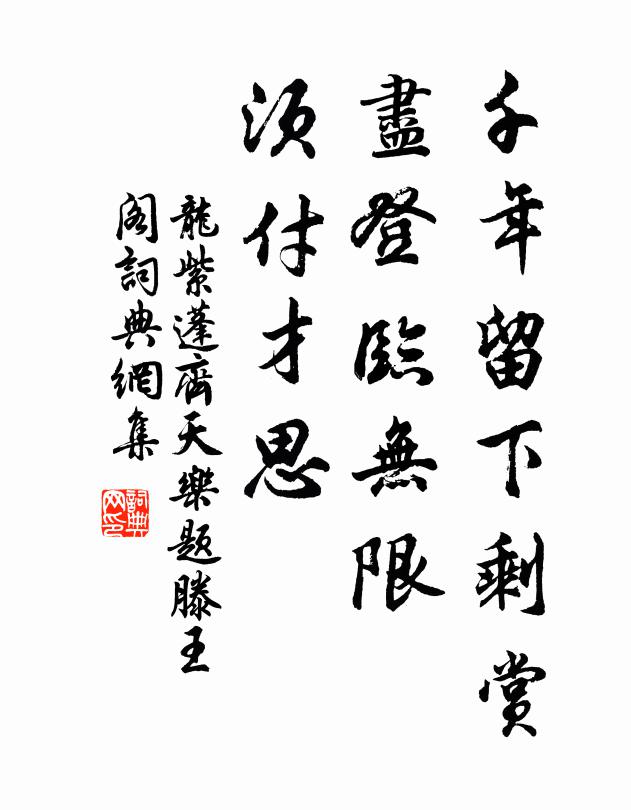 千年留下剩賞
盡登臨無限
須付才思
龍紫蓬齊天樂題滕王
閣詞典網集
詞典
网印